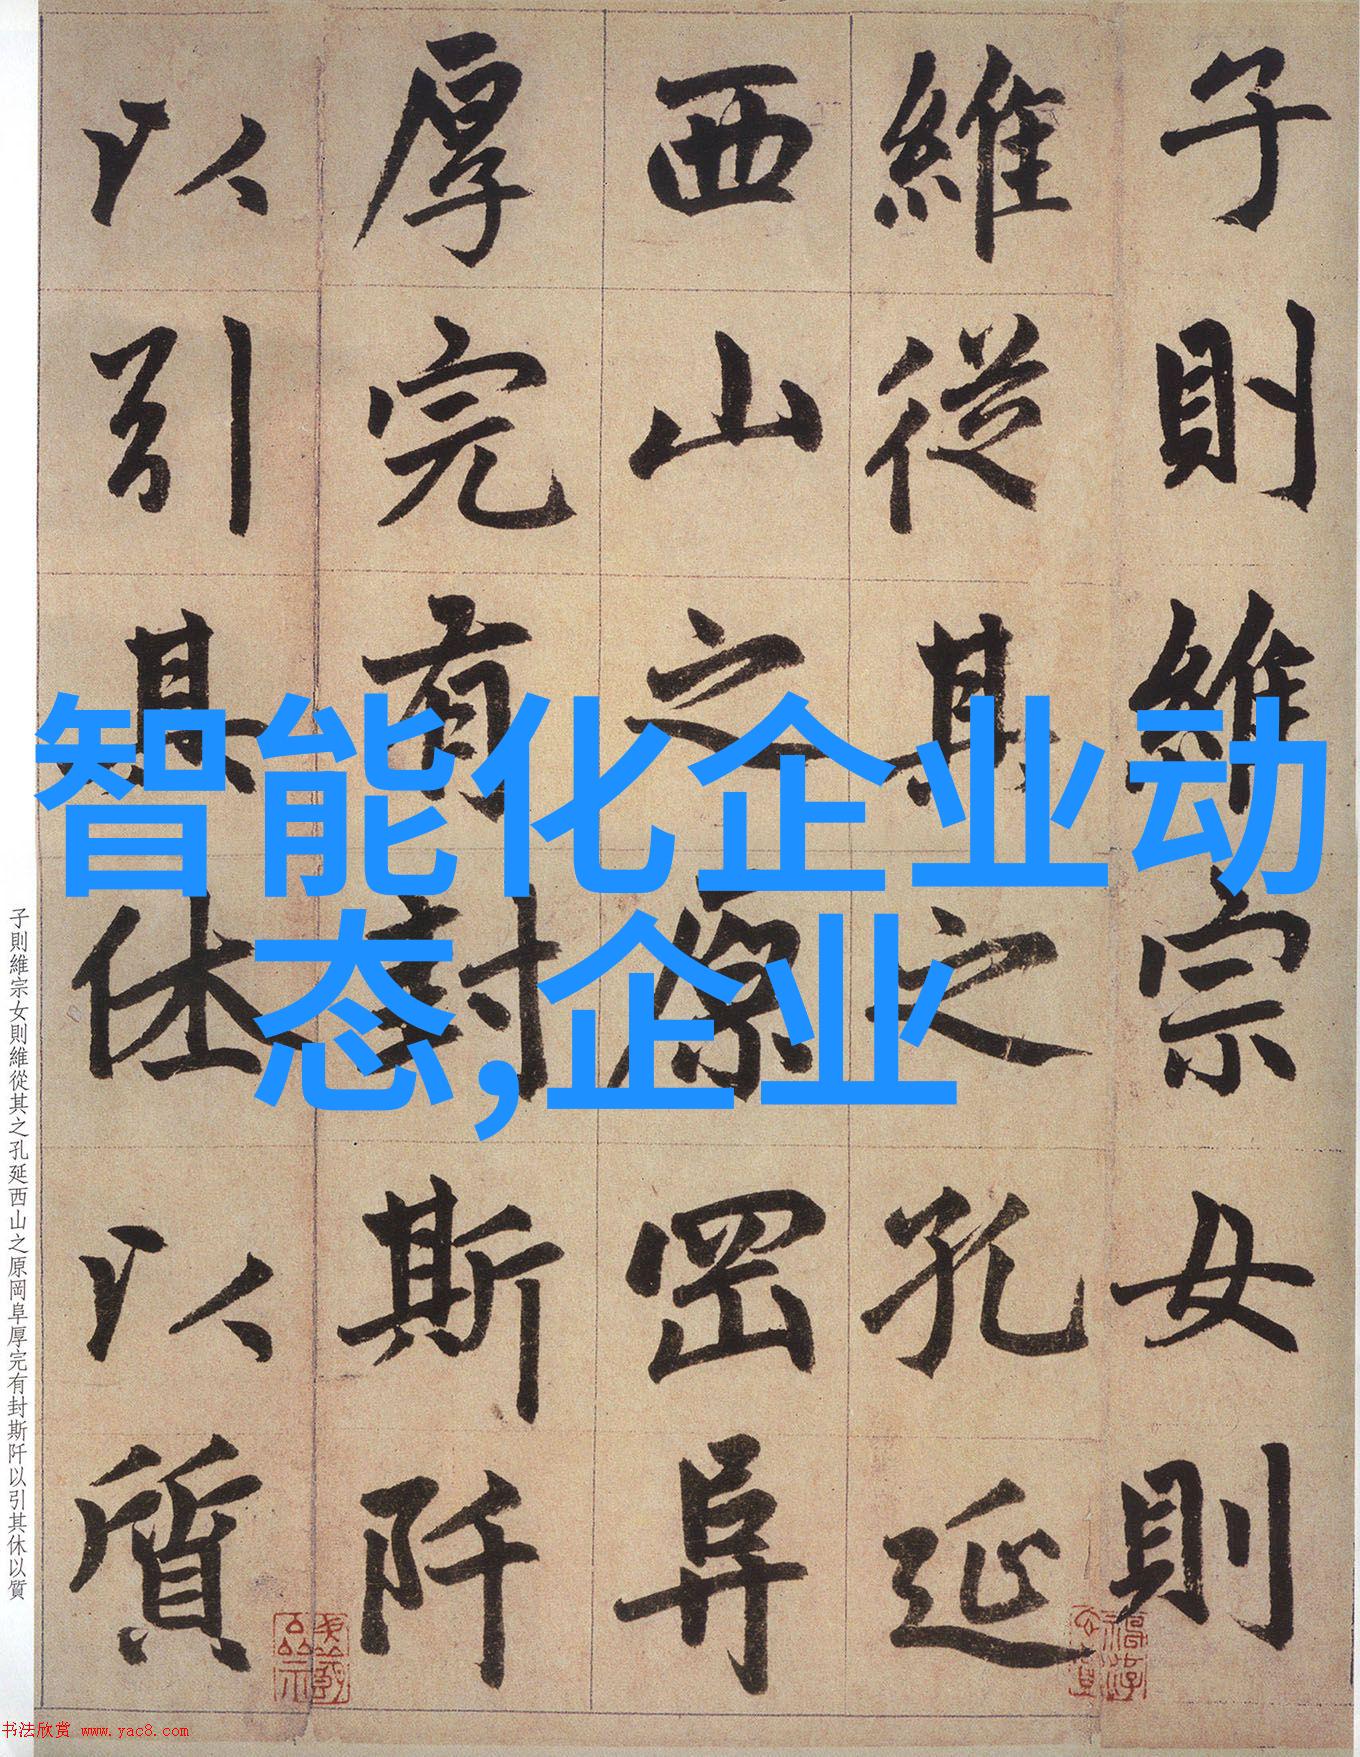 子則維宗女則
維從其之孔延
西山之原岡阜
厚完有封斯阡
以引其休以質
智能化企业动
态,企业
子則維宗女則維從其之孔延西山之原岡阜厚完有封斯阡以引其休以質
书法欣赏 www.yac8.com